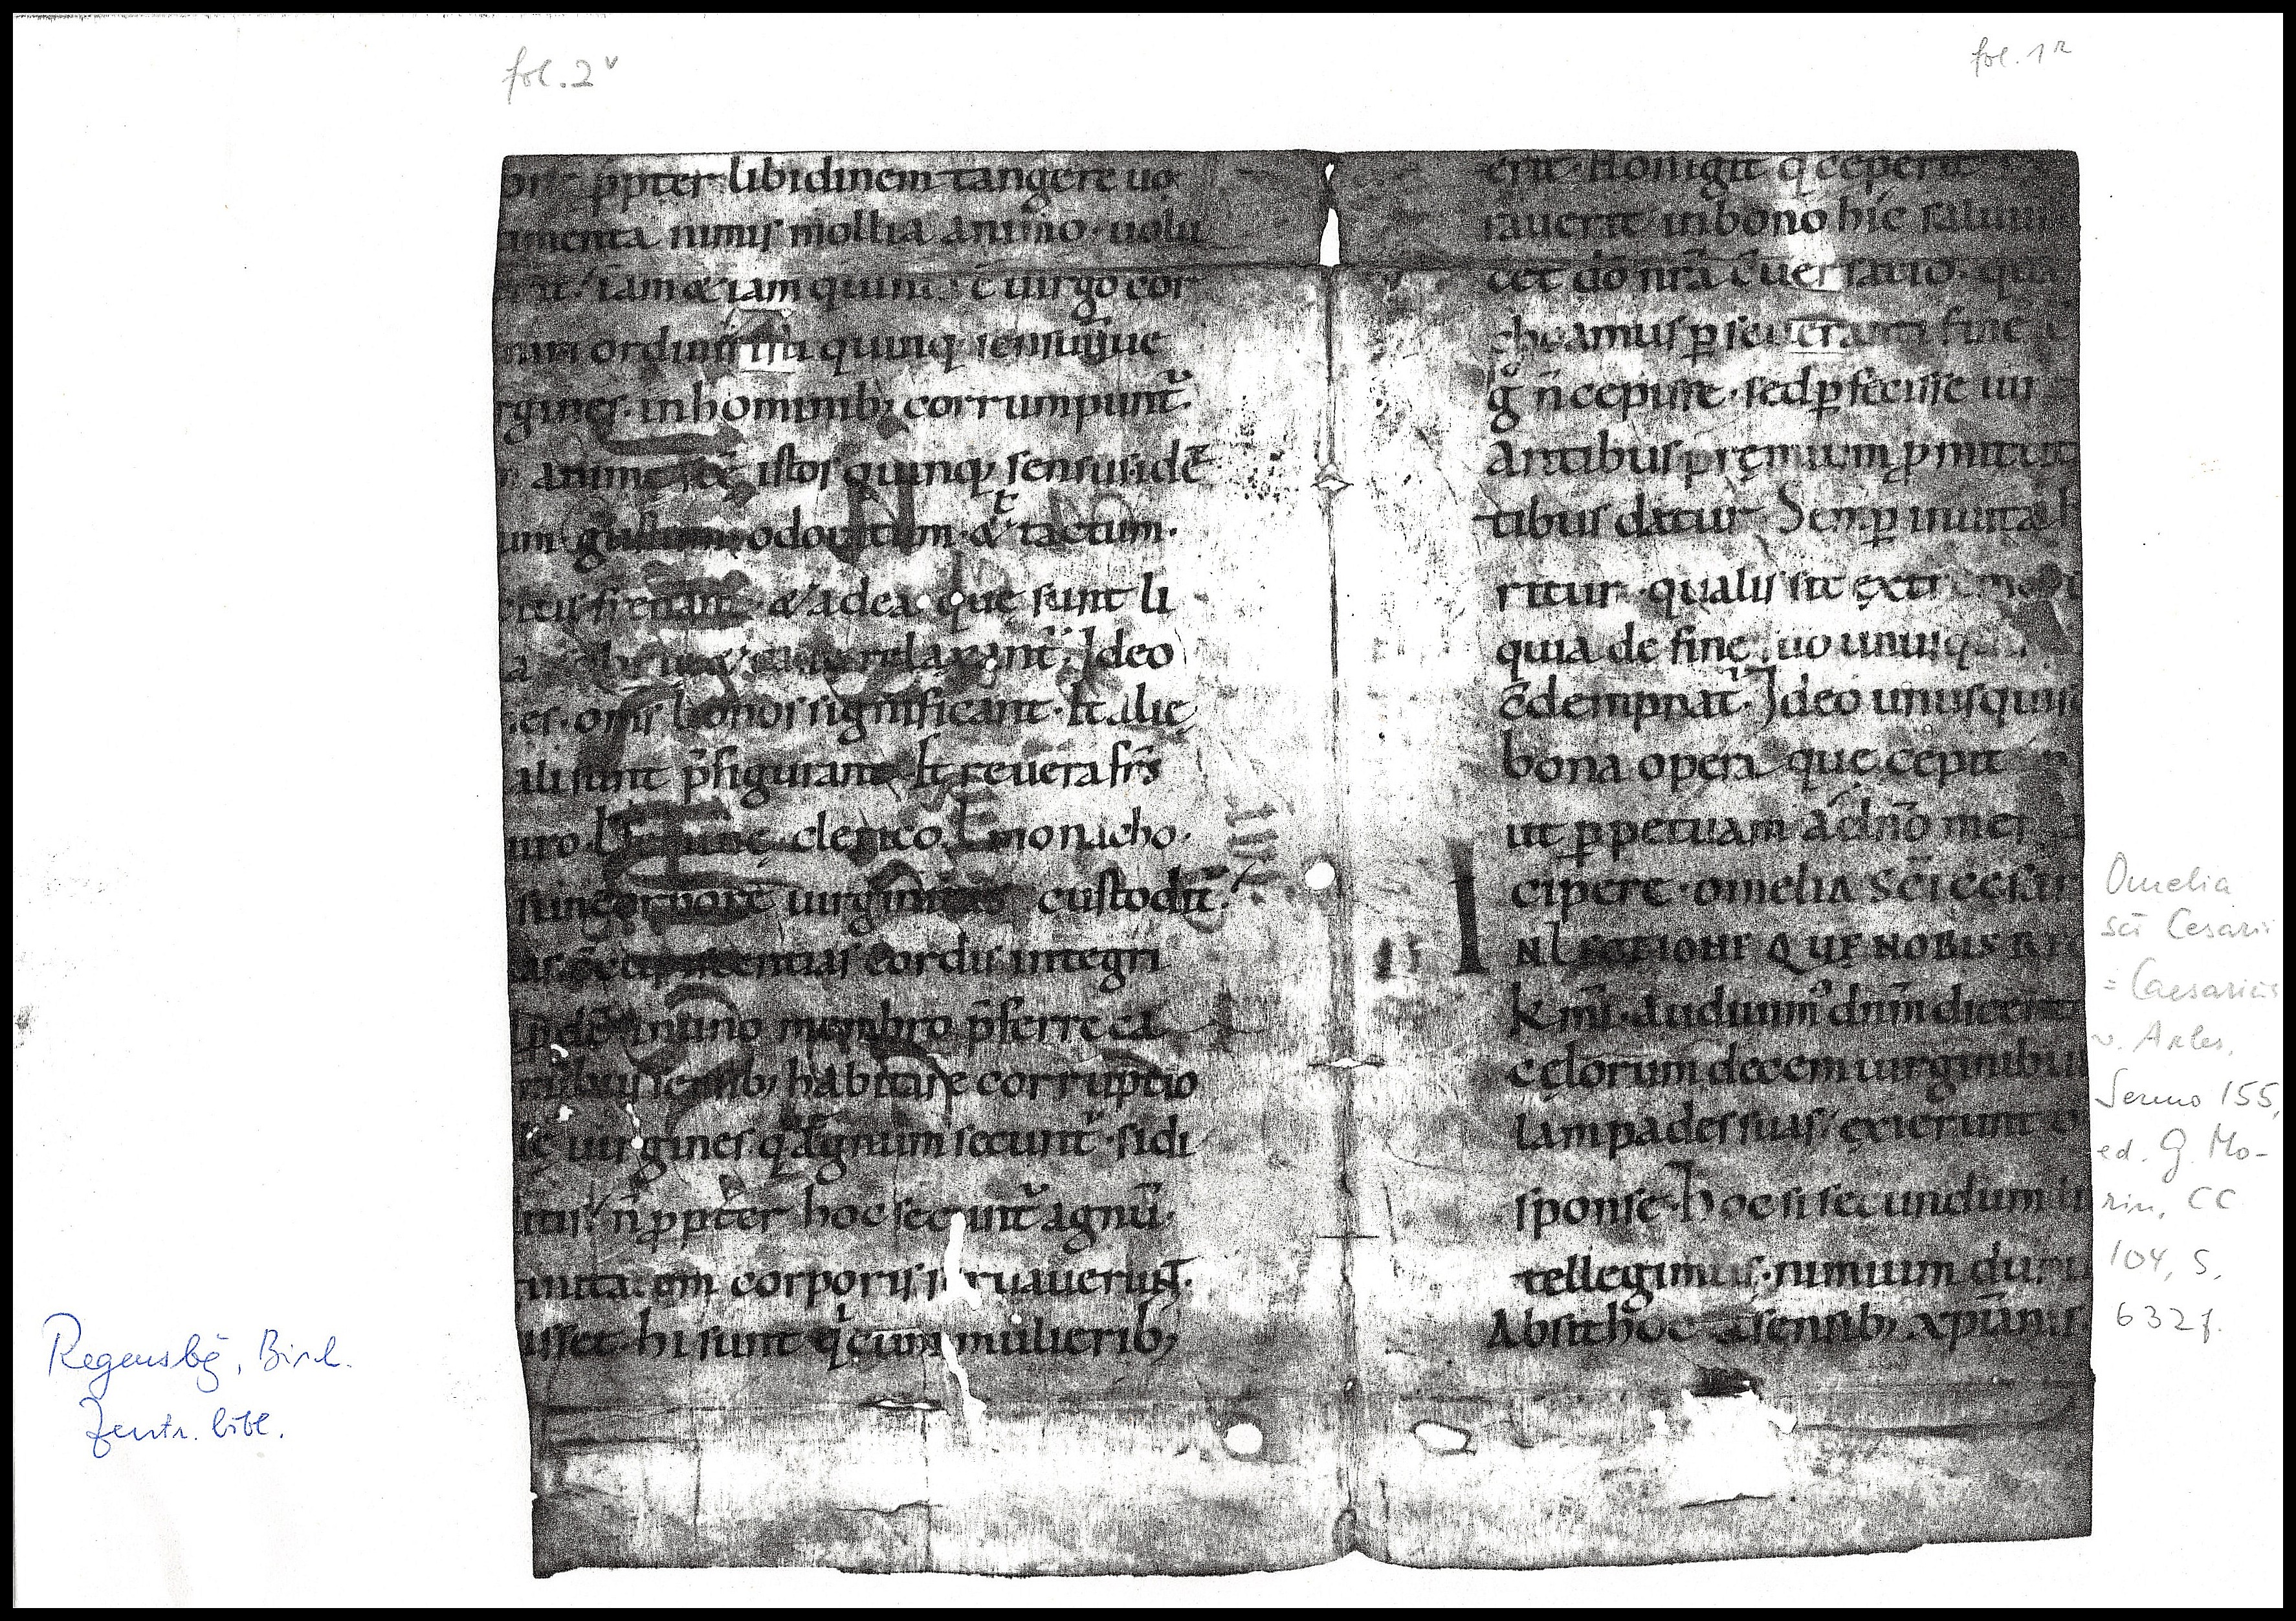 fol. 2v
fol. 1r
ppter libidinem tangere uo
imenta nimis mollia animo · uolu
iam & iam quinq; c̄ uirgo cor
ordinis quinq; sensuū que
rgines · in hominib; corrumpunt̄ ·
anime istos quinq; sensus · id ē
um · gustum odoratum · & tactum ·
& ad ea que sunt li
relaxant̄ · Ideo
es · om̄s bonos significant · Et alie
ali sunt p̄figurant · Et reuera fr̄s
uiro clerico ł monacho ·
si in corpore uirginitas custodit̄ ·
as concupiscentias cordis integri
in uno membro p̄ferre ca
sensib; habitare corruptio
uirgines q̄ agnum secunt̄ · si di
n̄ ppter hoc secunt̄ agnū ·
om̄ corporis seruauerunt ·
isset · hi sunt q̇ cum mulierib;
erit · Non igit̄ q̇ ceperit
rauerit in bono hic saluus
cet do nr̄a c̄uersatio · qua
cheamus p̄seueranti fine
g̊ n̄ cepisse · sed p̄fecisse uir
Antibus pręmium p̄mittit
tibus datur · Semp̄ in uita h
ritur · qualis sit extremo
quia de fine suo unusq
c̄dempnat̄ · Ideo unusquis
bona opera que cepit
ut p̄petuam a dn̄o mer
cipere · omelia sc̄i cesari
IN LECTIONE QUE NOBIS RE
k mi · audiuim' dn̄m dicent
cęlorum decem uirginibus
lampades suas exierunt o
sponse · hoc si secundum
tellegimus · nimium duru
Absit hoc a sensib; xp̄ianis
Omelia
sci Cesarii
= Caesarius
v. Arles,
Sermo 155,
ed. G. Mo-
rin, CC
104, S.
632f.
Regensbg, Bisch.
Zentr. bibl.